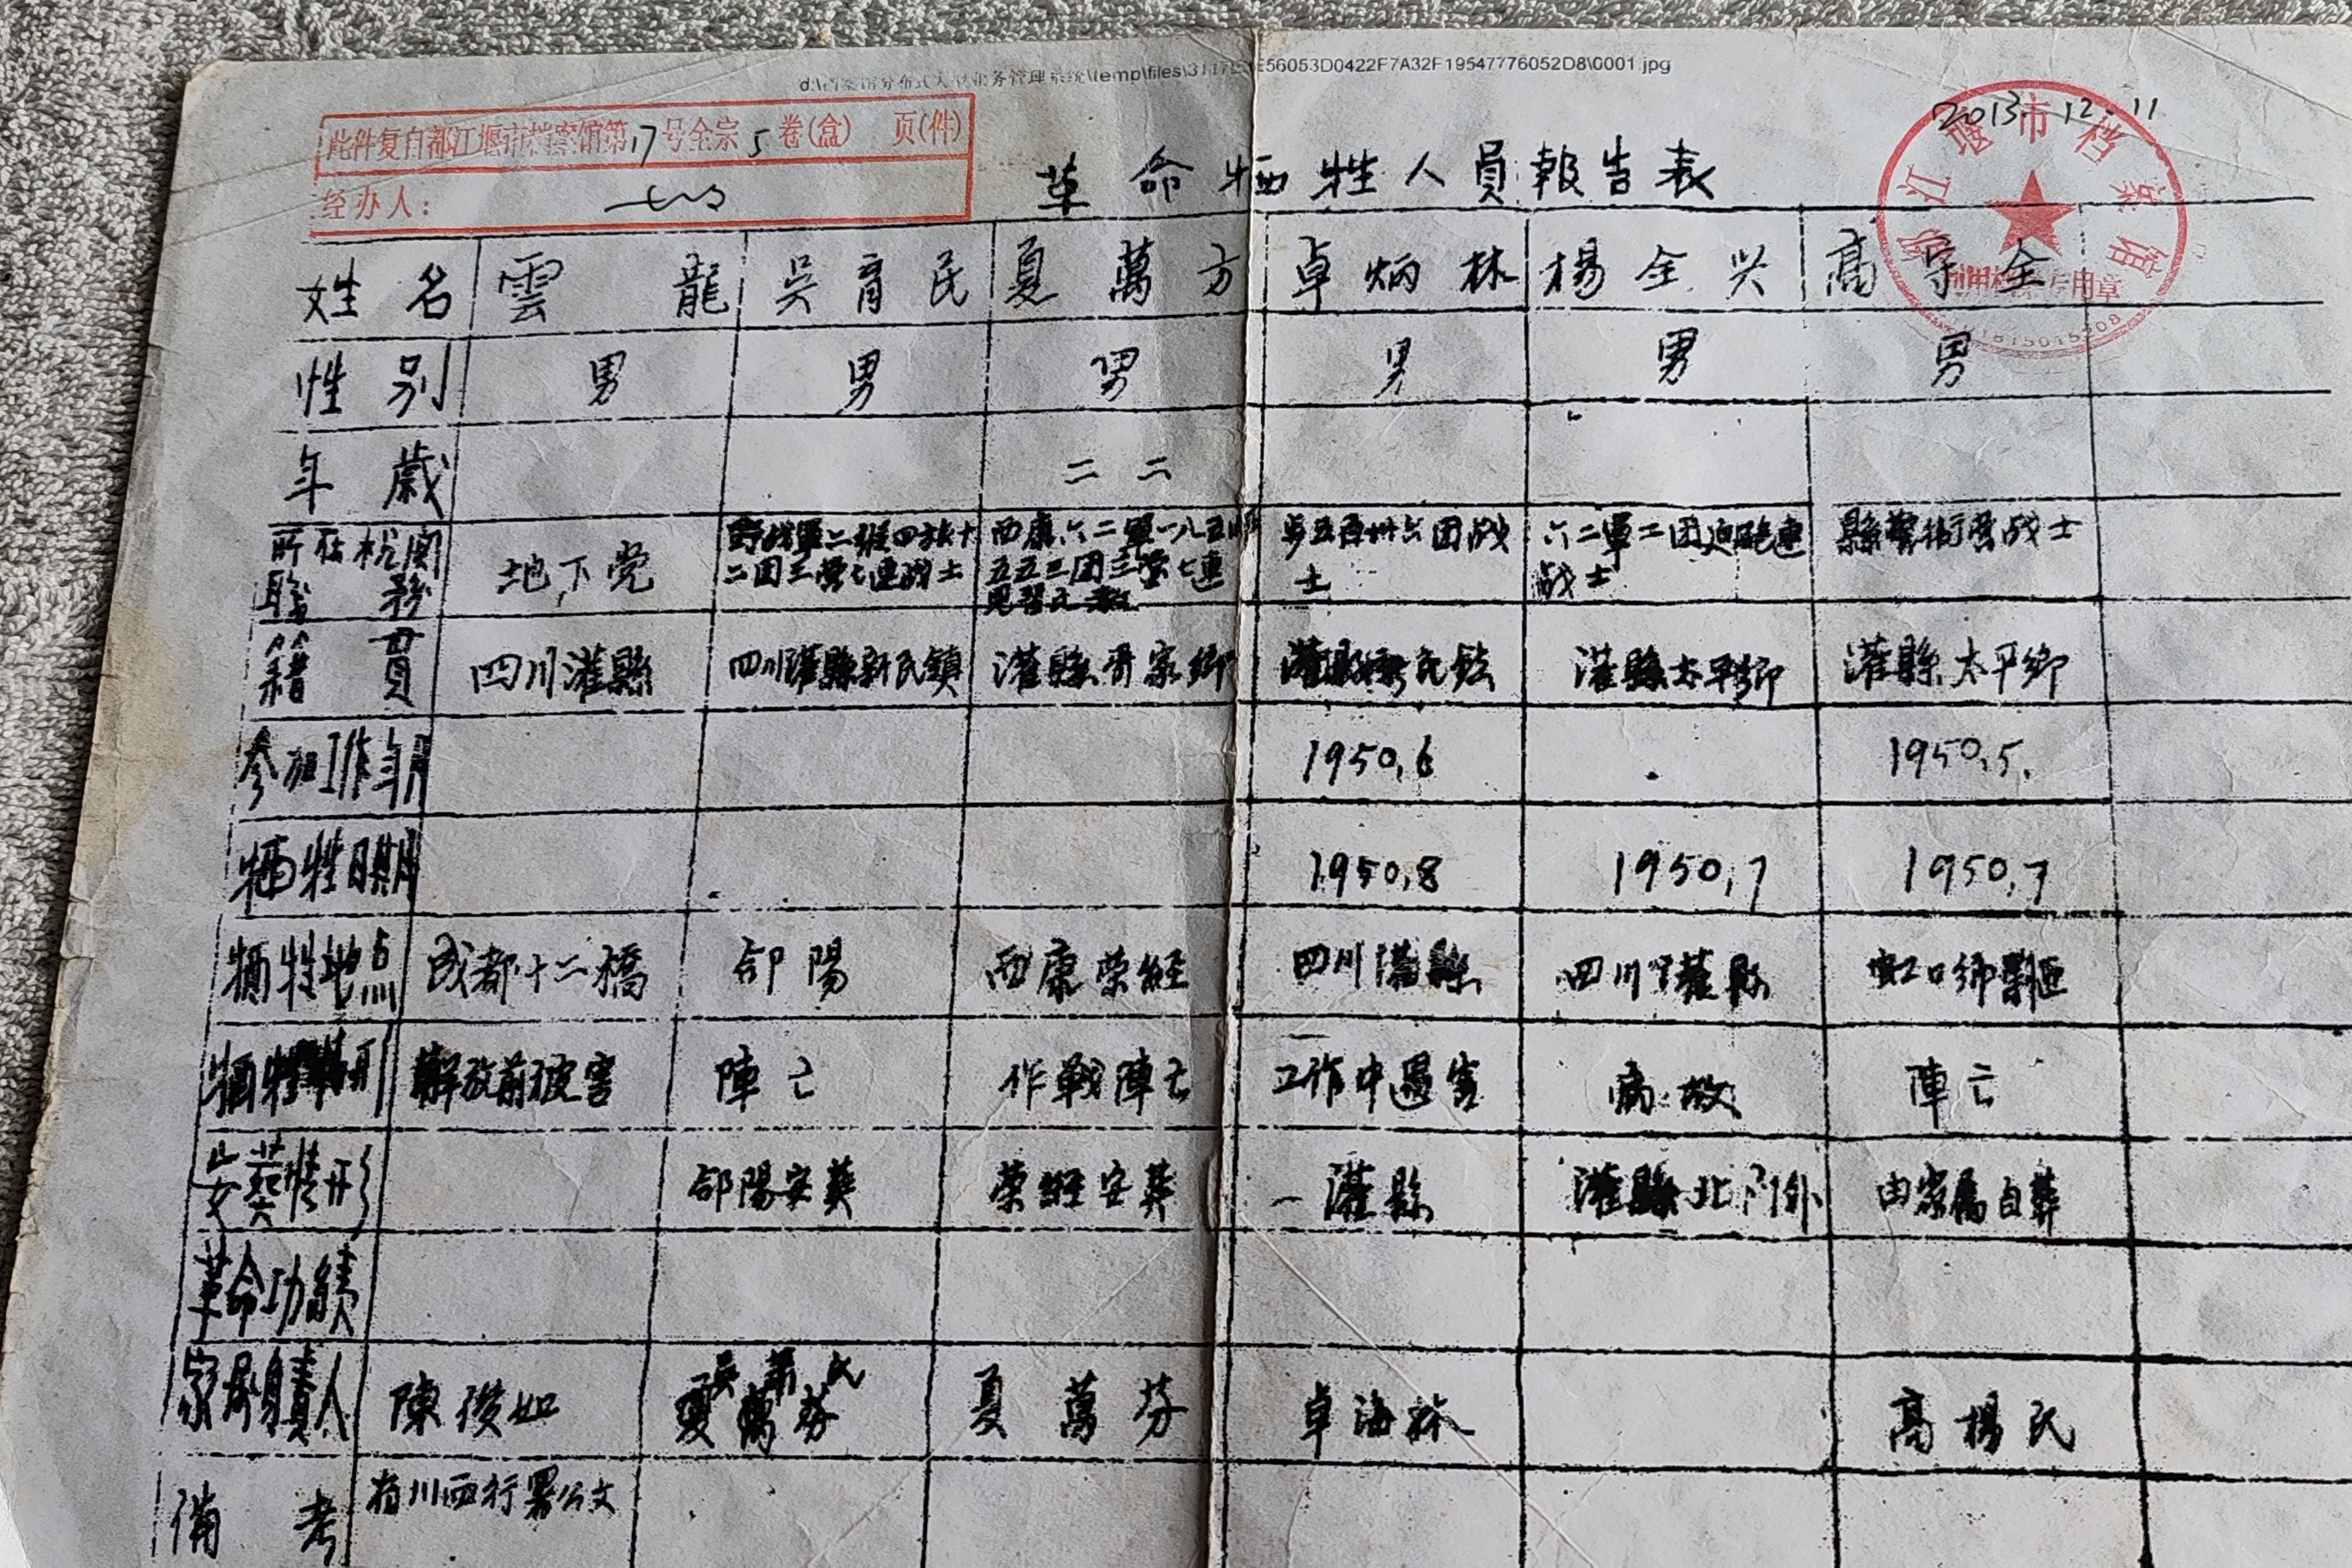 56053D0422F7A32F19547776052D8\0001.jpg
此件复自都江堰市档案馆第17号全宗5卷(盒) 页(件)
经办人:
2013.12.11
都江堰市档案馆
革命牺牲人員報告表
姓名 雲龍 吳育民 夏萬方 卓炳林 楊全兴 高守全
性别 男 男 男 男 男 男
年歲 二二
所在机関職務 地下党 野战軍二纵四旅十二团三营七連战士 西康六二軍一八五師五五三团三营七連見習 团战士 六二軍二团迫砲連战士 縣警衛营战士
籍貫 四川灌縣 四川灌縣新民鎮 灌縣胥家鄉 灌縣 灌縣太平鄉 灌縣太平鄉
参加工作年月 1950,6 1950,5.
牺牲日期 1950,8 1950,7 1950,7
牺牲地点 成都十二橋 郃陽 西康荣經 四川灌縣 四川灌縣 虹口鄉
牺牲情形 解放前被害 陣亡 作戰陣亡 工作中遇害 病故 陣亡
安葬情形 郃陽安葬 荣經安葬 灌縣 灌縣北门外 由家属自葬
革命功績
家屬負責人 陳俊如 吴蕭氏 夏萬芬 夏萬芬 卓海林 高楊氏
備考 有川西行署公文